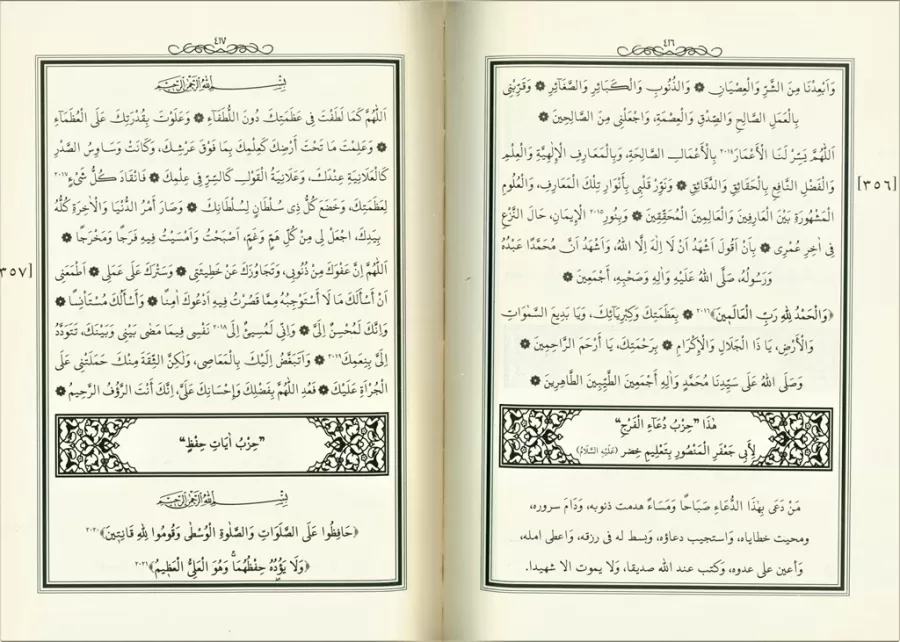 ٤١٦
وَاَبْعِدْنَا مِنَ الشَّرِّ وَالْعِصْيَانِ ۞ وَالذُّنُوبِ وَالْكَبَائِرِ وَالصَّغَائِرِ ۞ وَقَرِّبْنِي
بِالْعَمَلِ الصَّالِحِ وَالصِّدْقِ وَالْعِصْمَةِ، وَاجْعَلْنِي مِنَ الصَّالِحِينَ ۞
اَللّٰهُمَّ يَسِّرْ لَنَا الْأَعْمَارَ٢٠١٤ بِالْأَعْمَالِ الصَّالِحَةِ، وَبِالْمَعَارِفِ الْإِلٰهِيَّةِ وَالْعِلْمِ
وَالْفَضْلِ النَّافِعِ بِالْحَقَائِقِ وَالدَّقَائِقِ ۞ وَنَوِّرْ قَلْبِي بِأَنْوَارِ تِلْكَ الْمَعَارِفِ، وَالْعُلُومِ
[٣٥٦]
الْمَشْهُورَةِ بَيْنَ الْعَارِفِينَ وَالْعَالِمِينَ الْمُحَقِّقِينَ ۞ وَبِنُورِ٢٠١٥ الْإِيمَانِ، حَالَ النَّزْعِ
فِي اٰخِرِ عُمْرِي ۞ بِاَنْ اَقُولَ اَشْهَدُ اَنْ لَا اِلٰهَ اِلَّا اللهُ، وَاَشْهَدُ اَنَّ مُحَمَّدًا عَبْدُهُ
وَرَسُولُهُ، صَلَّى اللهُ عَلَيْهِ وَاٰلِهِ وَصَحْبِهِ، أَجْمَعِينَ ۞
﴿وَالْحَمْدُ لِلّٰهِ رَبِّ الْعَالَمِينَ﴾٢٠١٦ ۞ بِعَظَمَتِكَ وَكِبْرِيَائِكَ، وَيَا بَدِيعَ السَّمٰوَاتِ
وَالْأَرْضِ، يَا ذَا الْجَلَالِ وَالْإِكْرَامِ ۞ بِرَحْمَتِكَ، يَا أَرْحَمَ الرَّاحِمِينَ ۞
وَصَلَّى اللهُ عَلَى سَيِّدِنَا مُحَمَّدٍ وَاٰلِهِ أَجْمَعِينَ الطَّيِّبِينَ الطَّاهِرِينَ ۞
هٰذَا "حِزْبُ دُعَاءِ الْفَرَجِ"
لِأَبِي جَعْفَرِ الْمَنْصُورِ بِتَعْلِيمِ خِضر (عَلَيْهِ السَّلَامُ)
مَنْ دَعَى بِهٰذَا الدُّعَاءِ صَبَاحًا وَمَسَاءً هدمت ذنوبه، وَدَامَ سروره،
ومحيت خطاياه، وَاستجيب دعاؤه، وَبسط له فى رزقه، وَاعطى امله،
وَأعين على عدوه، وَكتب عند الله صديقا، وَلا يموت الا شهيدا.
٤١٧
بِسْمِ اللهِ الرَّحْمٰنِ الرَّحِيمِ
اَللّٰهُمَّ كَمَا لَطَفْتَ فِي عَظَمَتِكَ دُونَ اللُّطَفَاءِ ۞ وَعَلَوْتَ بِقُدْرَتِكَ عَلَى الْعُظَمَاءِ
۞ وَعَلِمْتَ مَا تَحْتَ أَرْضِكَ كَعِلْمِكَ بِمَا فَوْقَ عَرْشِكَ، وَكَانَتْ وَسَاوِسُ الصَّدْرِ
كَالْعَلَانِيَةِ عِنْدَكَ، وَعَلَانِيَةُ الْقَوْلِ كَالسِّرِّ فِي عِلْمِكَ ۞ فَانْقَادَ كُلُّ شَيْءٍ٢٠١٧
لِعَظَمَتِكَ، وَخَضَعَ كُلُّ ذِي سُلْطَانٍ لِسُلْطَانِكَ ۞ وَصَارَ أَمْرُ الدُّنْيَا وَالْاٰخِرَةِ كُلُّهُ
بِيَدِكَ، اجْعَلْ لِي مِنْ كُلِّ هَمٍّ وَغَمٍّ، اَصْبَحْتُ وَاَمْسَيْتُ فِيهِ فَرَجًا وَمَخْرَجًا ۞
٣٥٧]
اَللّٰهُمَّ اِنَّ عَفْوَكَ مِنْ ذُنُوبِي، وَتَجَاوُزَكَ عَنْ خَطِيئَتِي ۞ وَسَتْرَكَ عَلَى عَمَلِي ۞ اَطْمَعَنِي
اَنْ أَسْأَلَكَ مَا لَا أَسْتَوْجِبُهُ مِمَّا قَصَرْتُ فِيهِ اَدْعُوكَ اٰمِنًا ۞ وَأَسْأَلُكَ مُسْتَأْنِسًا ۞
وَاِنَّكَ لَمُحْسِنٌ اِلَيَّ ۞ وَاِنِّي لَمُسِيئٌ اِلَى٢٠١٨ نَفْسِي فِيمَا مَضَى بَيْنِي وَبَيْنَكَ، تَتَوَدَّدُ
اِلَيَّ بِنِعَمِكَ٢٠١٩ ۞ وَأَتَبَغَّضُ اِلَيْكَ بِالْمَعَاصِي، وَلٰكِنَّ الثِّقَةَ مِنْكَ حَمَلَتْنِي عَلَى
الْجُرْأَةِ عَلَيْكَ ۞ فَعُدِ اللّٰهُمَّ بِفَضْلِكَ وَإِحْسَانِكَ عَلَيَّ، اِنَّكَ أَنْتَ الرَّؤُفُ الرَّحِيمُ ۞
"حِزْبُ اٰيَاتِ حِفْظٍ"
بِسْمِ اللهِ الرَّحْمٰنِ الرَّحِيمِ
﴿حَافِظُوا عَلَى الصَّلَوَاتِ وَالصَّلٰوةِ الْوُسْطٰى وَقُومُوا لِلّٰهِ قَانِتِينَ﴾٢٠٢٠
﴿وَلَا يَؤُدُهُ حِفْظُهُمَا وَهُوَ الْعَلِيُّ الْعَظِيمُ﴾٢٠٢١